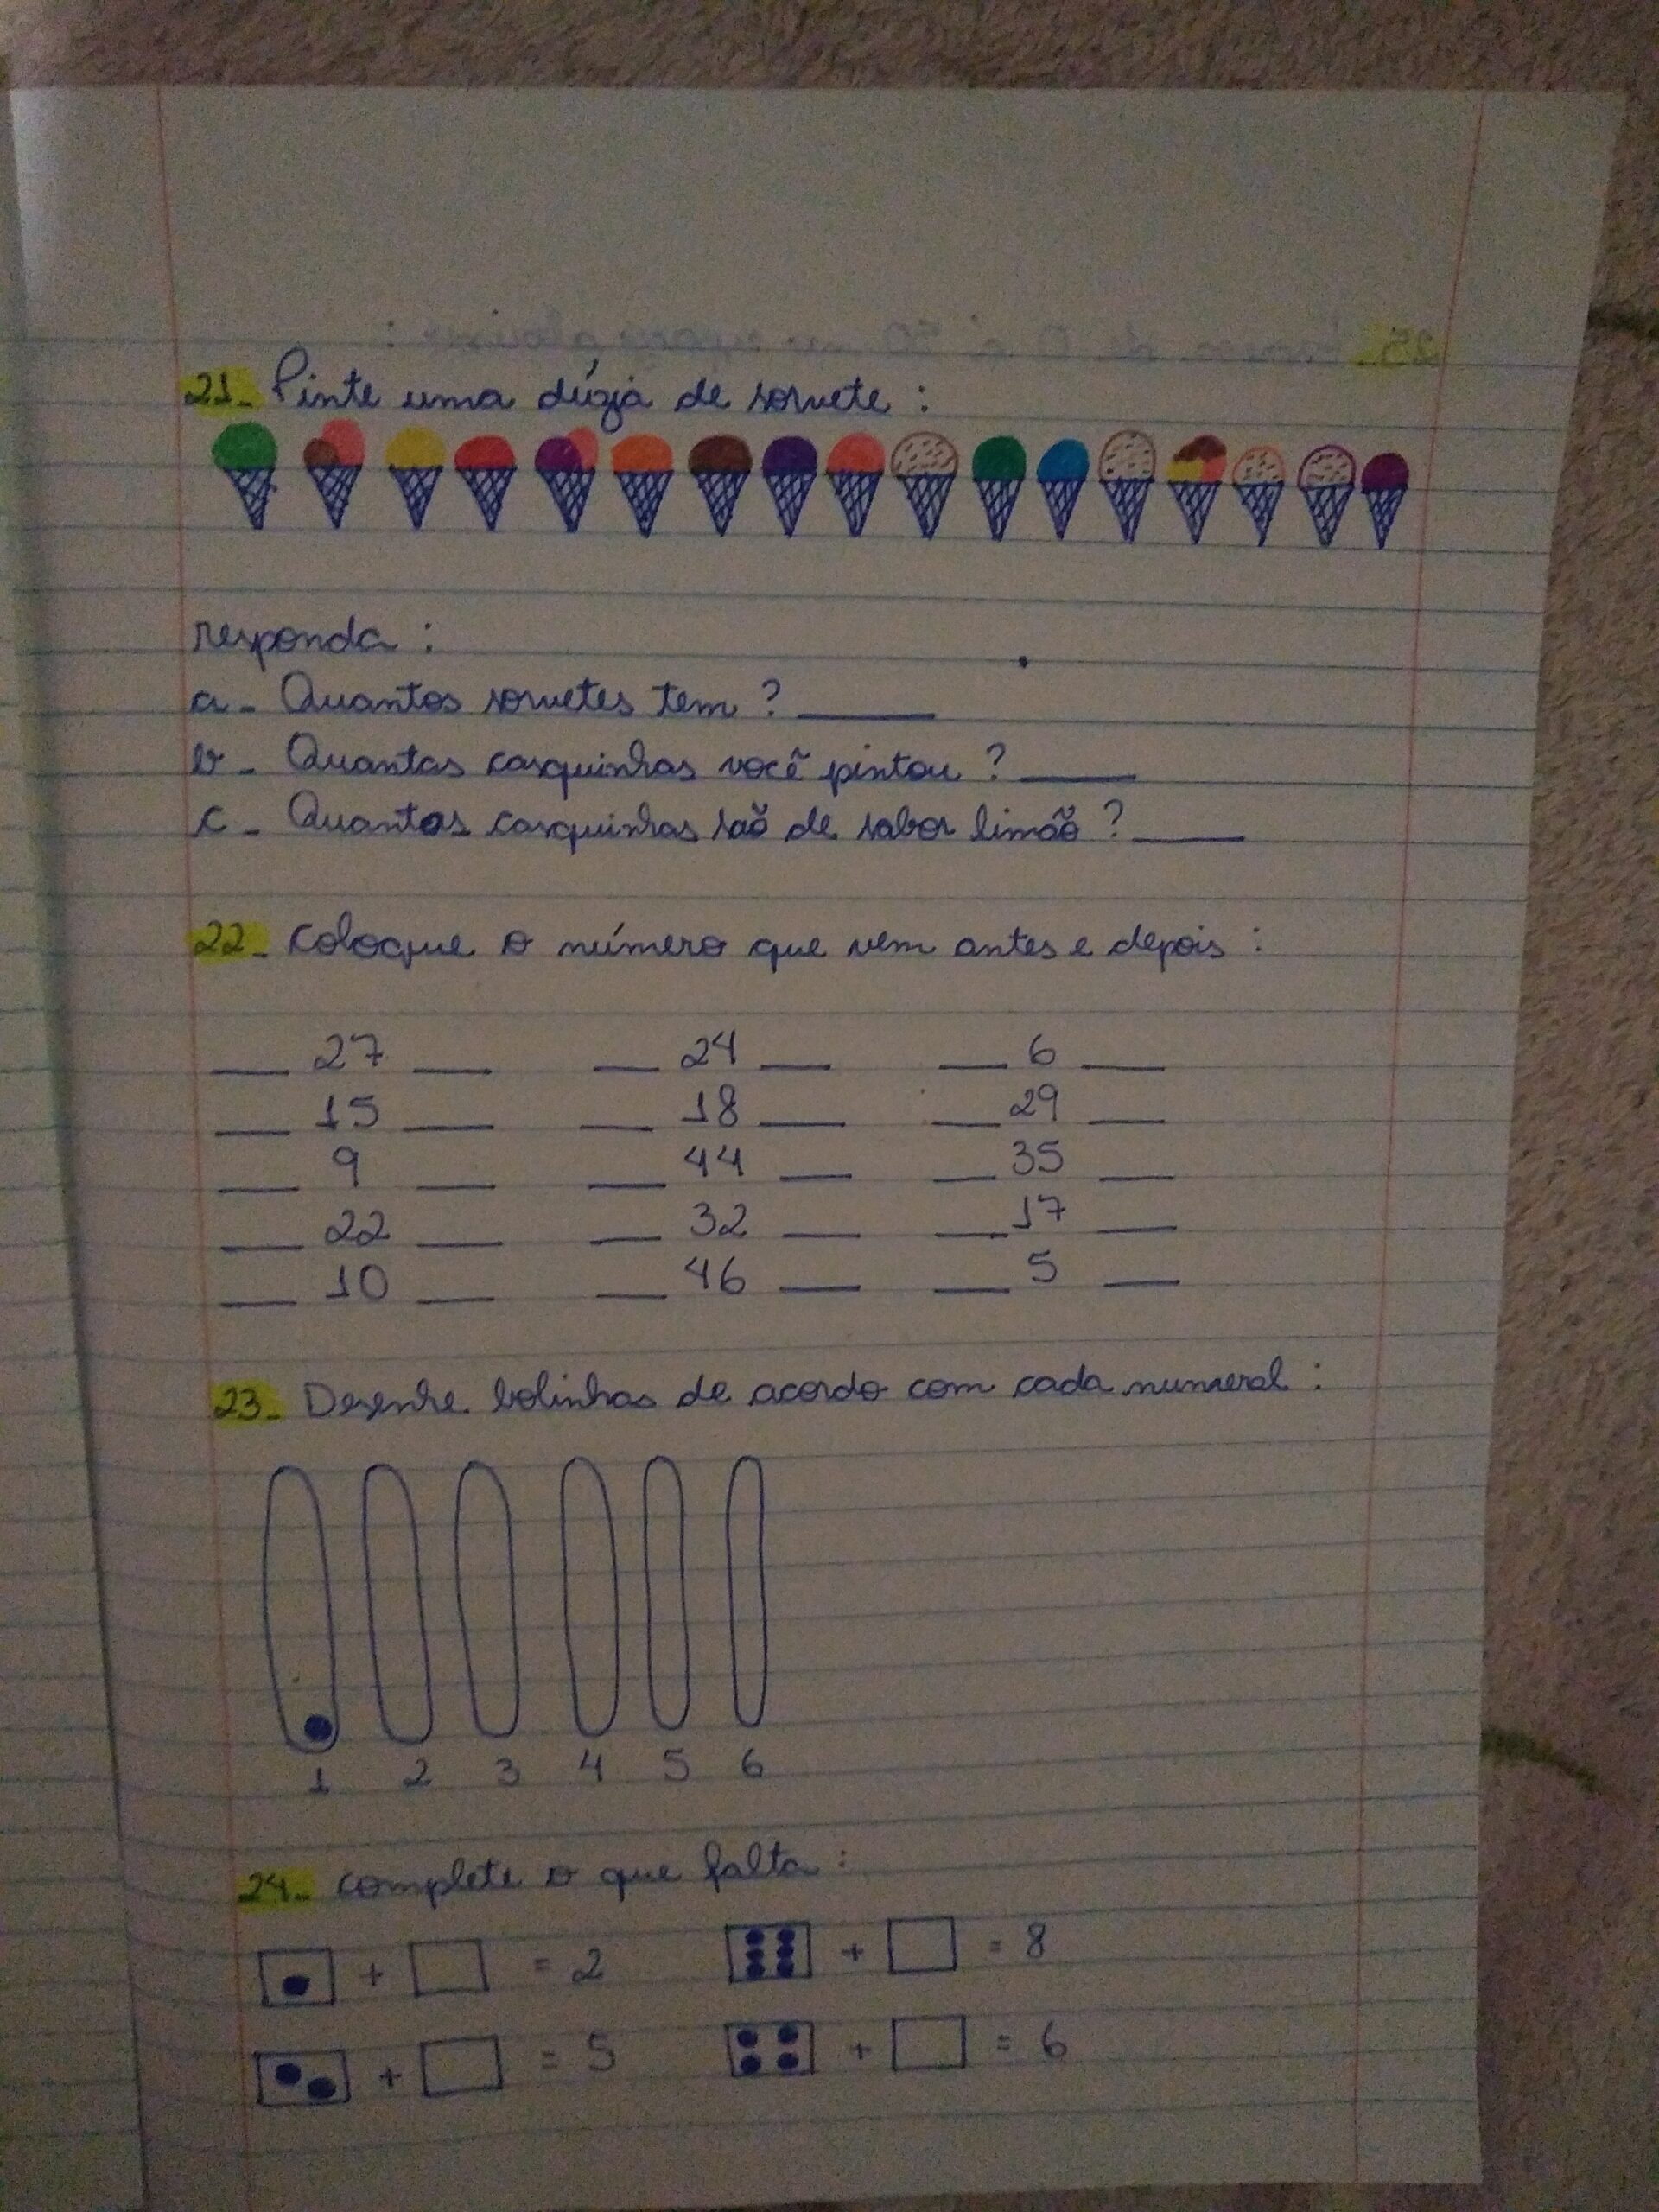 21- Pinte uma dúzia de sorvete :
responda :
a - Quantos sorvetes tem ? ____
b - Quantas casquinhas você pintou ? ____
c - Quantas casquinhas são de sabor limão ? ____
22- coloque o número que vem antes e depois :
__ 27 __ __ 24 __ __ 6 __
__ 15 __ __ 18 __ __ 29 __
__ 9 __ __ 44 __ __ 35 __
__ 22 __ __ 32 __ __ 17 __
__ 10 __ __ 46 __ __ 5 __
23- Desenhe bolinhas de acordo com cada numeral :
1 2 3 4 5 6
24- complete o que falta :
+ = 2 + = 8
+ = 5 + = 6